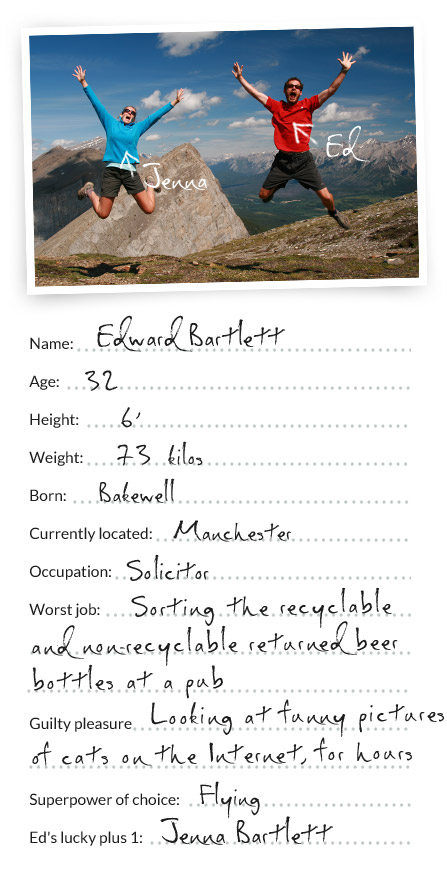 Ed
Jenna
Name: Edward Bartlett
Age: 32
Height: 6'
Weight: 73 kilos
Born: Bakewell
Currently located: Manchester
Occupation: Solicitor
Worst job: Sorting the recyclable
and non-recyclable returned beer
bottles at a pub
Guilty pleasure Looking at funny pictures
of cats on the Internet, for hours
Superpower of choice: Flying
Ed's lucky plus 1: Jenna Bartlett